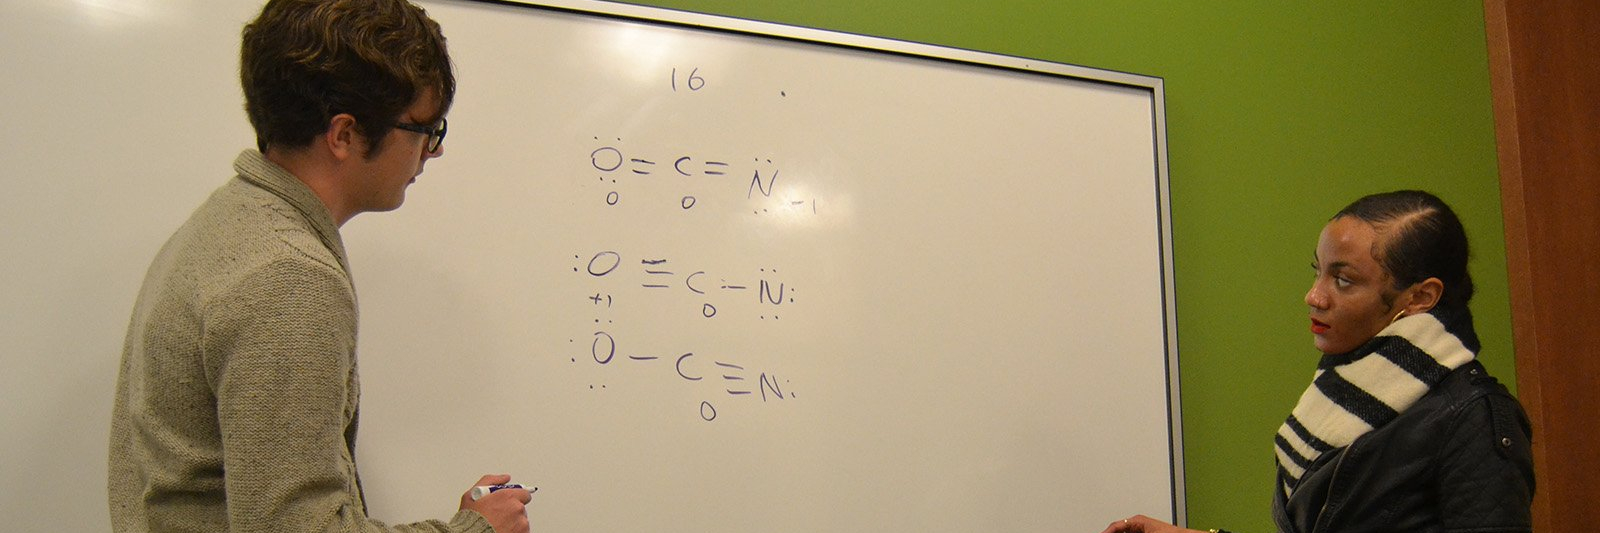 16
:Ö: = C = :N̈:
0 0 -1
:O ≡ C - :N̈:
+1 0
:Ö: - C ≡ N:
0